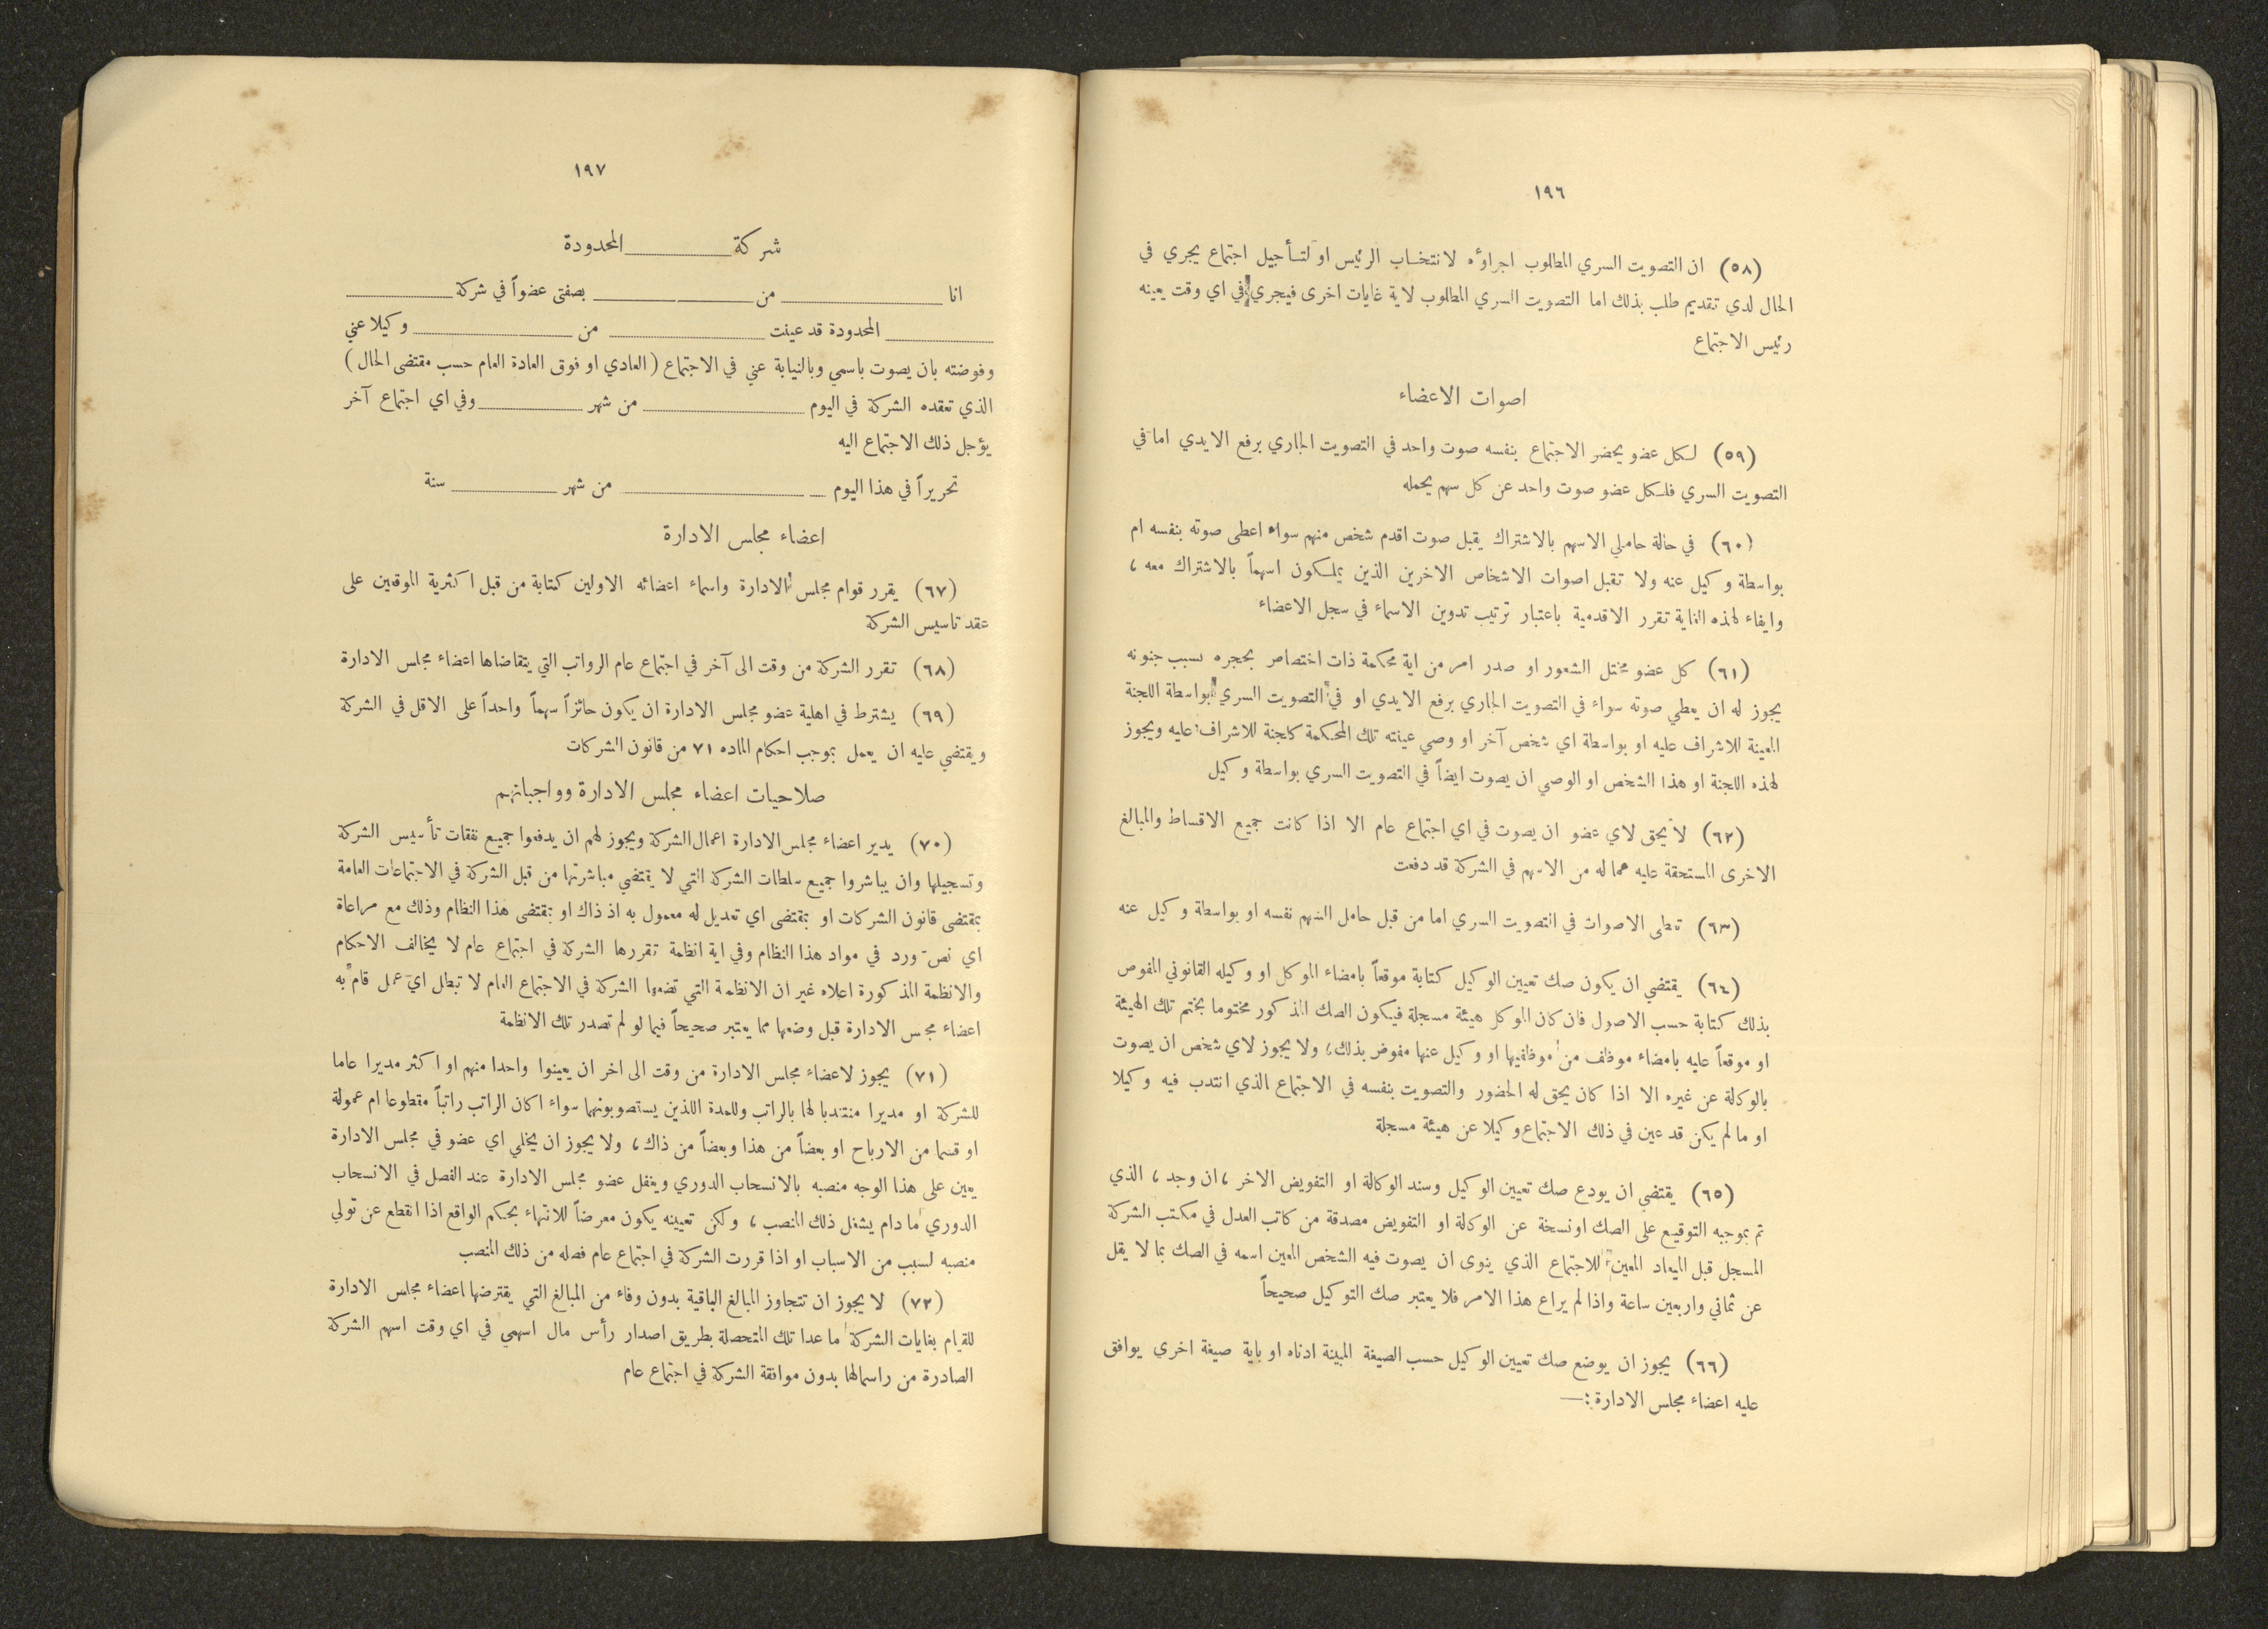 ١٩٦
(٥٨) ان التصويت السري المطلوب اجراؤه لانتخاب الرئيس او لتأجيل اجتماع يجري في
الحال لدى تقديم طلب بذلك اما التصويت السري المطلوب لاية غايات اخرى فيجري في اي وقت يعينه
رئيس الاجتماع
اصوات الاعضاء
(٥٩) لكل عضو يحضر الاجتماع بنفسه صوت واحد في التصويت الجاري برفع الايدي اما في
التصويت السري فلكل عضو صوت واحد عن كل سهم يحمله
(٦٠) في حالة حاملي الاسهم بالاشتراك يقبل صوت اقدم شخص منهم سواء اعطى صوته بنفسه ام
بواسطة وكيل عنه ولا تقبل اصوات الاشخاص الاخرين الذين يملكون اسهماً بالاشتراك معه ،
وايفاء لهذه الغاية تقرر الاقدمية باعتبار ترتيب تدوين الاسماء في سجل الاعضاء
(٦١) كل عضو مختل الشعور او صدر امر من اية محكمة ذات اختصاص بحجره بسبب جنونه
يجوز له ان يعطي صوته سواء في التصويت الجاري برفع الايدي او في التصويت السري بواسطة اللجنة
المعينة للاشراف عليه او بواسطة اي شخص آخر او وصي عينته تلك المحكمة كلجنة للاشراف عليه ويجوز
لهذه اللجنة او هذا الشخص او الوصي ان يصوت ايضاً في التصويت السري بواسطة وكيل
(٦٢) لا يحق لاي عضو ان يصوت في اي اجتماع عام الا اذا كانت جميع الاقساط والمبالغ
الاخرى المستحقة عليه عما له من الاسهم في الشركة قد دفعت
(٦٣) تعطى الاصوات في التصويت السري اما من قبل حامل السهم نفسه او بواسطة وكيل عنه
(٦٤) يقتضي ان يكون صك تعيين الوكيل كتابة موقعاً بامضاء الموكل او وكيله القانوني المفوض
بذلك كتابة حسب الاصول فان كان الموكل هيئة مسجلة فيكون الصك المذكور مختوما بختم تلك الهيئة
او موقعاً عليه بامضاء موظف من موظفيها او وكيل عنها مفوض بذلك، ولا يجوز لاي شخص ان يصوت
بالوكالة عن غيره الا اذا كان يحق له الحضور والتصويت بنفسه في الاجتماع الذي انتدب فيه وكيلا
او ما لم يكن قد عين في ذلك الاجتماع وكيلا عن هيئة مسجلة
(٦٥) يقتضي ان يودع صك تعيين الوكيل وسند الوكالة او التفويض الاخر ، ان وجد ، الذي
تم بموجبه التوقيع على الصك او نسخة عن الوكالة او التفويض مصدقة من كاتب العدل في مكتب الشركة
المسجل قبل الميعاد المعين للاجتماع الذي ينوى ان يصوت فيه الشخص المعين اسمه في الصك بما لا يقل
عن ثماني واربعين ساعة واذا لم يراع هذا الامر فلا يعتبر صك التوكيل صحيحاً
(٦٦) يجوز ان يوضع صك تعيين الوكيل حسب الصيغة المبينة ادناه او باية صيغة اخرى يوافق
عليه اعضاء مجلس الادارة :—
١٩٧
شركة ـــــــ المحدودة
انا ـــــــ من ـــــــ بصفتي عضواً في شركة ـــــــ
ـــــــ المحدودة قد عينت ـــــــ من ـــــــ وكيلا عني
وفوضته بان يصوت باسمي وبالنيابة عني في الاجتماع (العادي او فوق العادة العام حسب مقتضى الحال)
الذي تعقده الشركة في اليوم ـــــــ من شهر ـــــــ وفي اي اجتماع آخر
يؤجل ذلك الاجتماع اليه
تحريراً في هذا اليوم ـــــــ من شهر ـــــــ سنة
اعضاء مجلس الادارة
(٦٧) يقرر قوام مجلس الادارة واسماء اعضائه الاولين كتابة من قبل اكثرية الموقعين على
عقد تاسيس الشركة
(٦٨) تقرر الشركة من وقت الى آخر في اجتماع عام الرواتب التي يتقاضاها اعضاء مجلس الادارة
(٦٩) يشترط في اهلية عضو مجلس الادارة ان يكون حائزاً سهماً واحداً على الاقل في الشركة
ويقتضي عليه ان يعمل بموجب احكام الماده ٧١ من قانون الشركات
صلاحيات اعضاء مجلس الادارة وواجباتهم
(٧٠) يدير اعضاء مجلس الادارة اعمال الشركة ويجوز لهم ان يدفعوا جميع نفقات تأسيس الشركة
وتسجيلها وان يباشروا جميع سلطات الشركة التي لا يقتضي مباشرتها من قبل الشركة في الاجتماعات العامة
بمقتضى قانون الشركات او بمقتضى اي تعديل له معمول به اذ ذاك او بمقتضى هذا النظام وذلك مع مراعاة
اي نص ورد في مواد هذا النظام وفي اية انظمة تقررها الشركة في اجتماع عام لا يخالف الاحكام
والانظمة المذكورة اعلاه غير ان الانظمة التي تضعها الشركة في الاجتماع العام لا تبطل اي عمل قام به
اعضاء مجلس الادارة قبل وضعها مما يعتبر صحيحاً فيما لو لم تصدر تلك الانظمة
(٧١) يجوز لاعضاء مجلس الادارة من وقت الى اخر ان يعينوا واحدا منهم او اكثر مديرا عاما
للشركة او مديرا منتدبا لها بالراتب وللمدة اللذين يستصوبونهما سواء اكان الراتب راتباً مقطوعا ام عمولة
او قسما من الارباح او بعضاً من هذا وبعضاً من ذاك ، ولا يجوز ان يخلي اي عضو في مجلس الادارة
يعين على هذا الوجه منصبه بالانسحاب الدوري ويغفل عضو مجلس الادارة عند الفصل في الانسحاب
الدوري ما دام يشغل ذلك المنصب ، ولكن تعيينه يكون معرضاً للانتهاء بحكم الواقع اذا انقطع عن تولي
منصبه لسبب من الاسباب او اذا قررت الشركة في اجتماع عام فصله من ذلك المنصب
(٧٢) لا يجوز ان تتجاوز المبالغ الباقية بدون وفاء من المبالغ التي يقترضها اعضاء مجلس الادارة
للقيام بغايات الشركة ما عدا تلك المتحصلة بطريق اصدار رأس مال اسهمي في اي وقت اسهم الشركة
الصادرة من راسمالها بدون موافقة الشركة في اجتماع عام